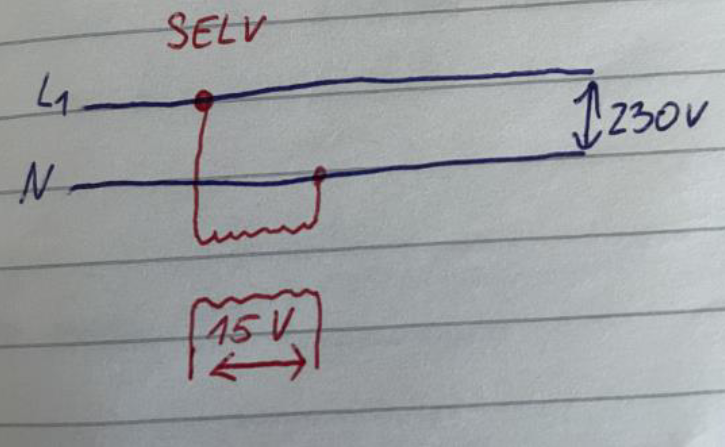 SELV
L1
230V
N
15 V